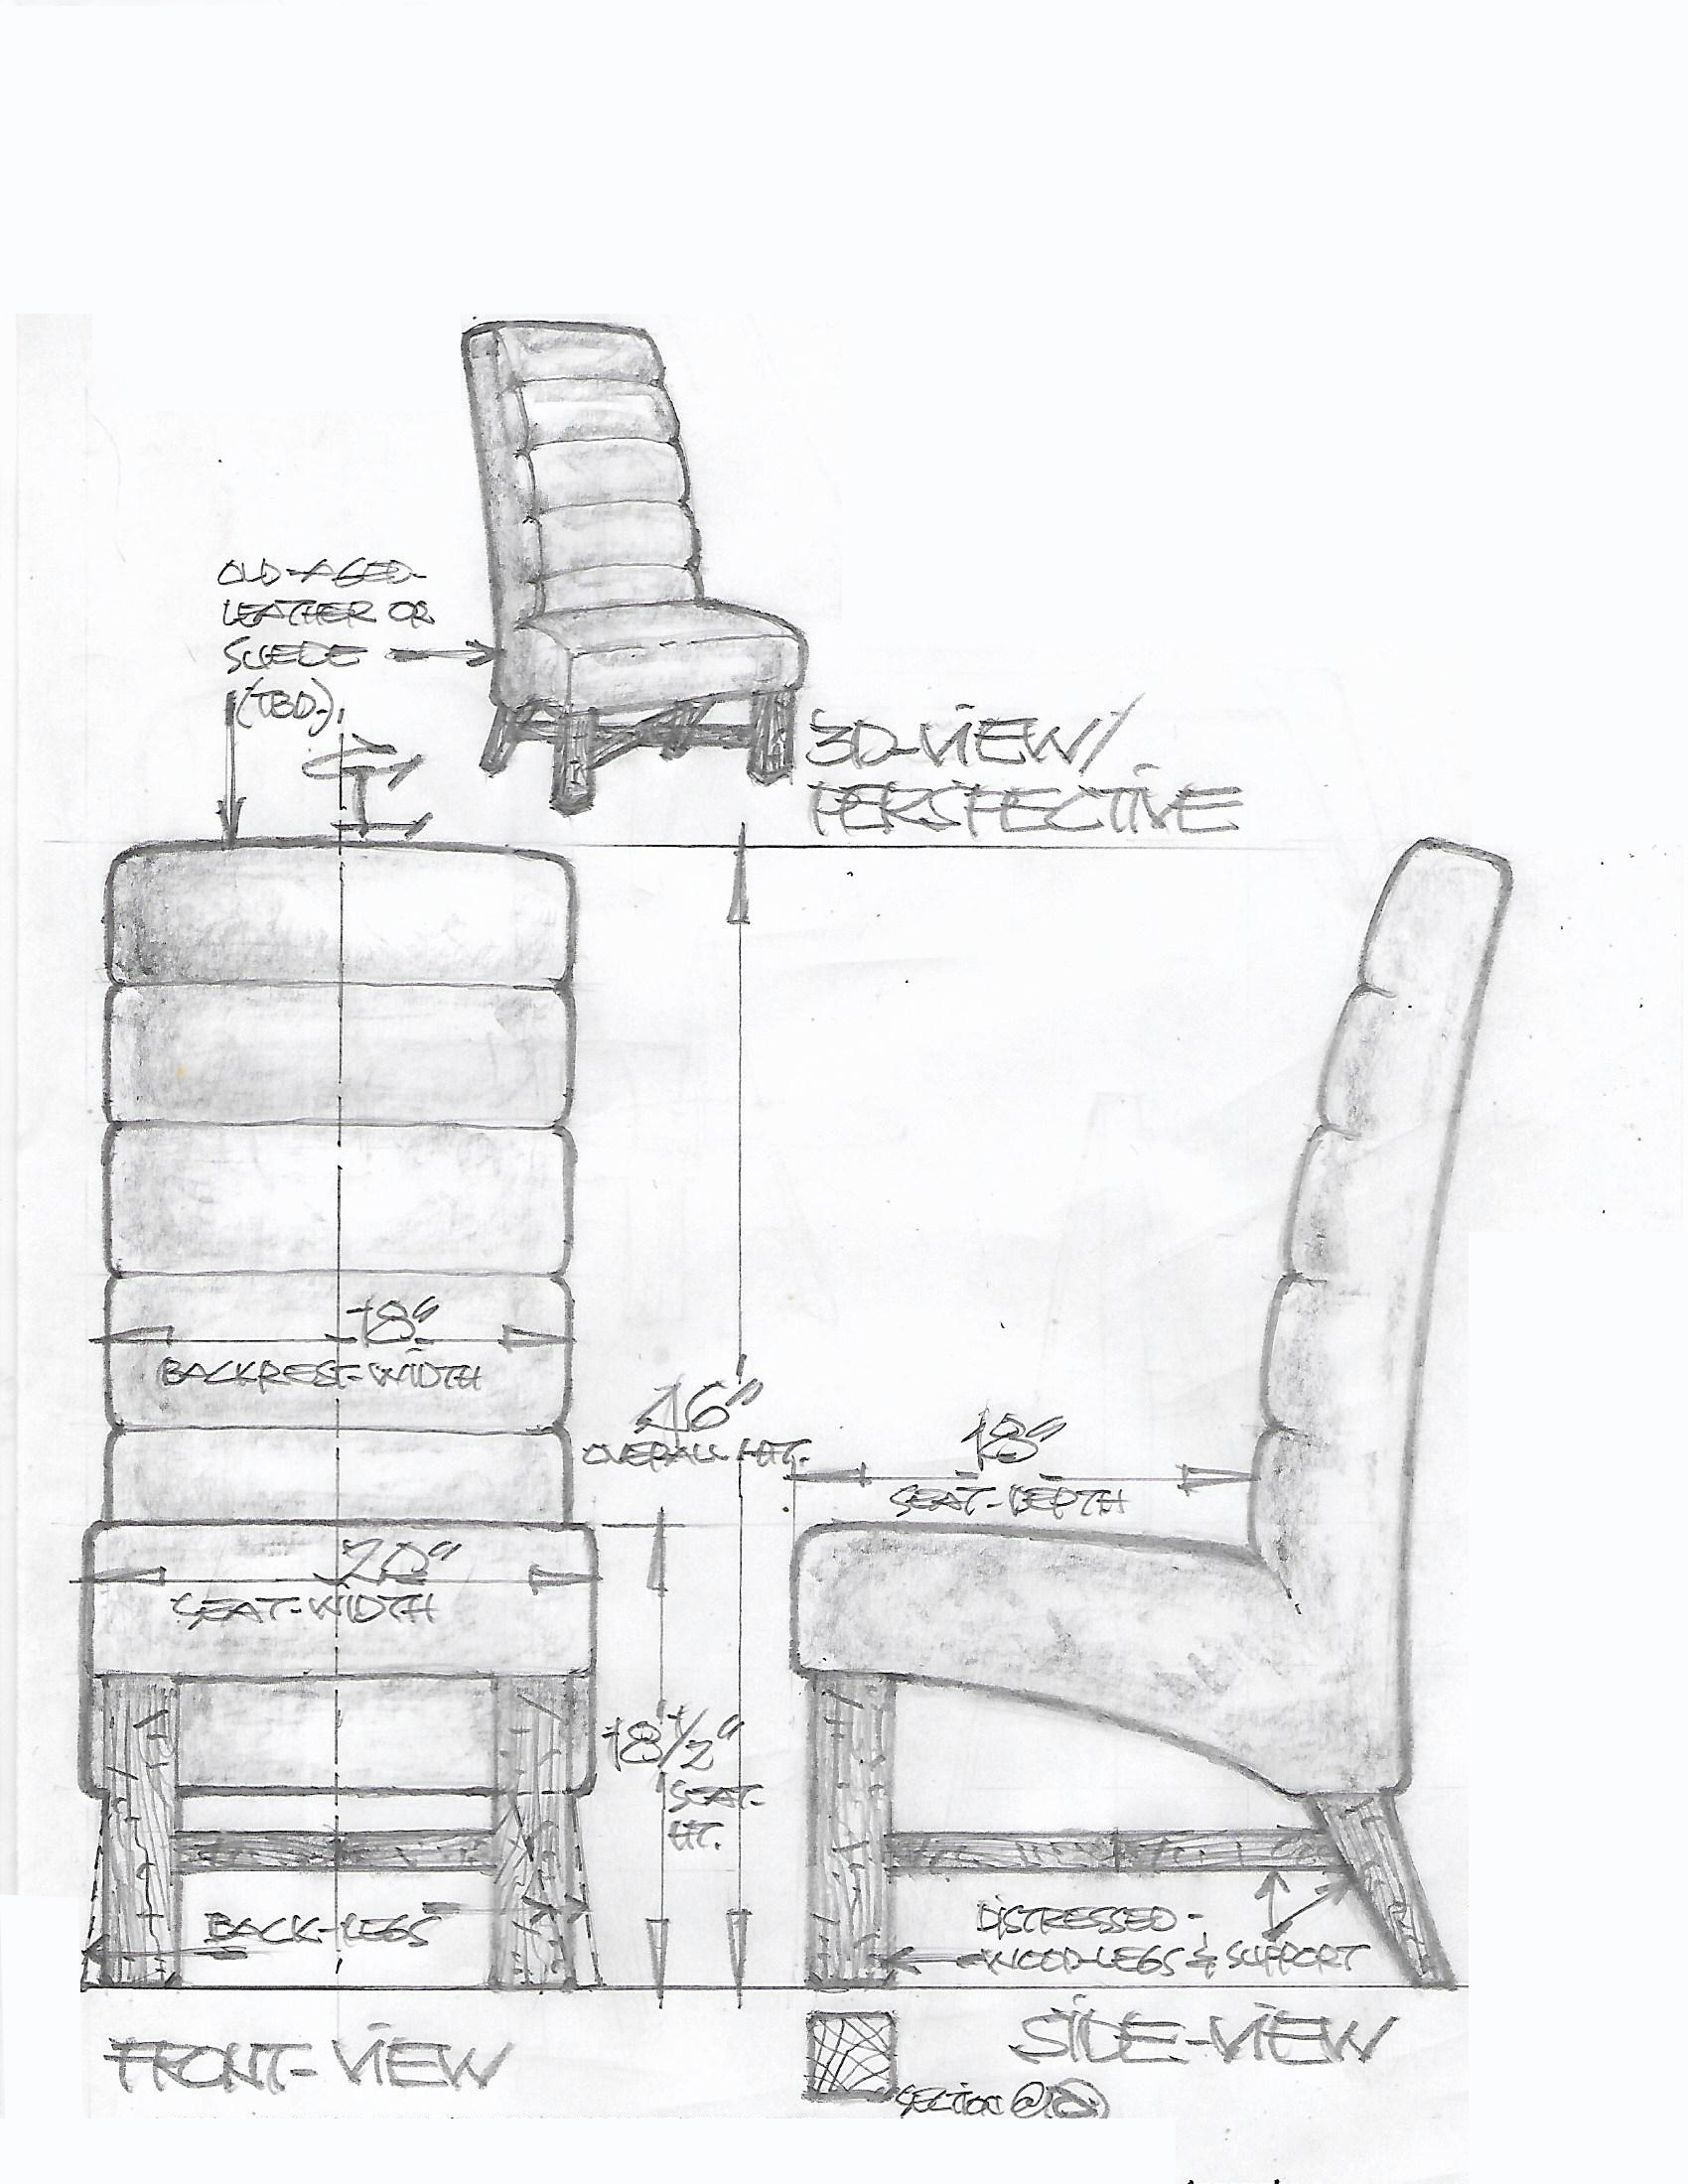 OLD-AGED-
LEATHER OR
SUEDE
(TBD.)
3D-VIEW/
PERSPECTIVE
18"
BACKREST-WIDTH
46"
OVERALL HT.
18"
SEAT-DEPTH
20"
SEAT-WIDTH
18 1/2"
SEAT-
HT.
BACK-LEGS
DISTRESSED-
WOOD-LEGS & SUPPORT
FRONT-VIEW
SIDE-VIEW
SECTION @